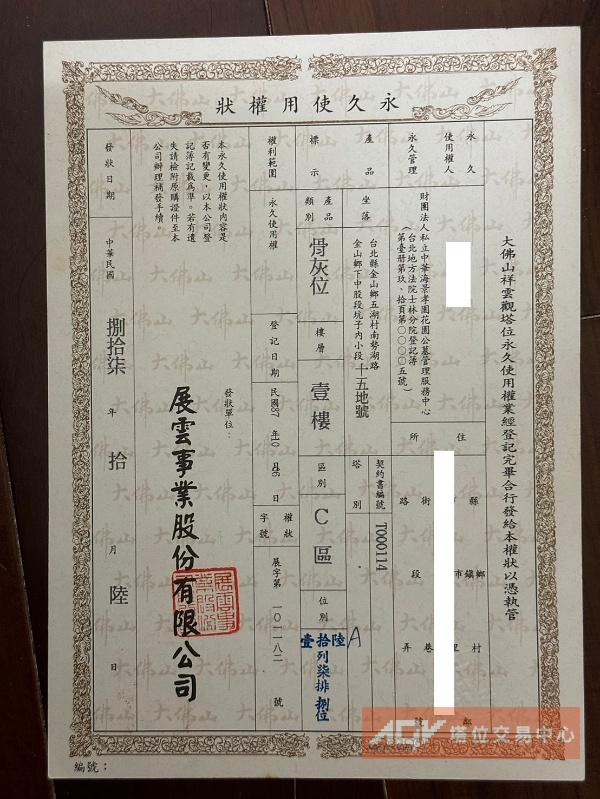 永久使用權狀
大佛山祥雲觀塔位永久使用權業經登記完畢合行發給本權狀以憑執管
永久使用權人
住所
縣市
鄉鎮
村里
街路
段
巷
弄
永久管理
財團法人私立中華海景孝園花園公墓管理服務中心
(台北地方法院士林分院登記簿
第壹册第玖、拾頁第○○○○五號)
產品
坐落
台北縣金山鄉五湖村南勢湖路
金山鄉下中股段坑子內小段十五地號
契約書編號
TO00114
標示
產品類別
骨灰位
樓層
壹樓
塔區別
C區
位別
陸A
拾列柒排捌位
壹
權利範圍
永久使用權
登記日期
民國87年10月06日
權狀字號
展字第一○一一八二號
本永久使用權狀內容是
否有變更,以本公司登
記簿記載為準。若有遺
失請檢附原購證件至本
公司辦理補發手續。
發狀單位:
展雲事業股份有限公司
發狀日期
中華民國捌拾柒年拾月陸日
編號:
塔位交易中心